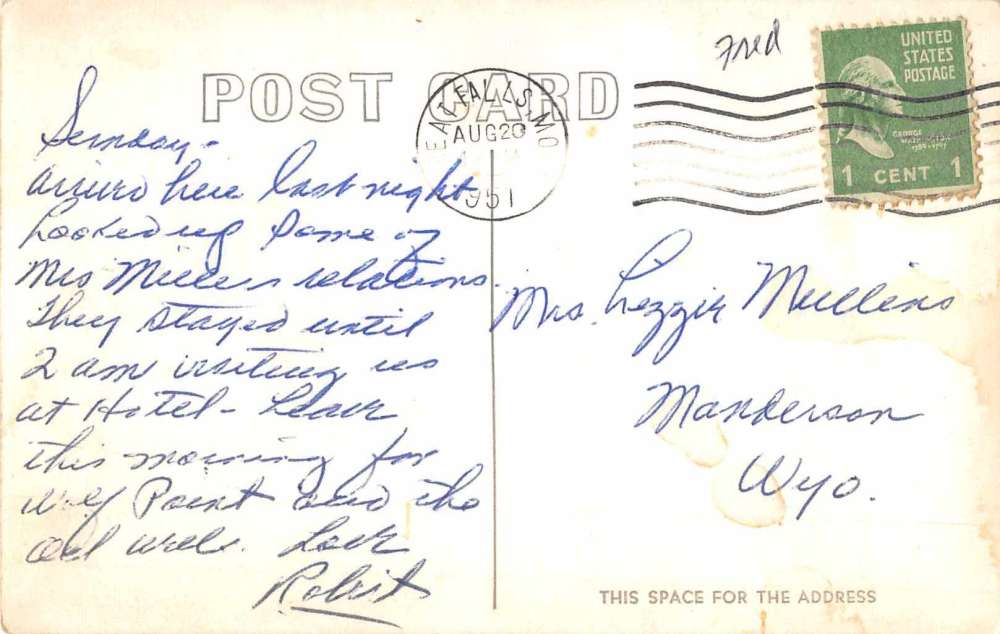 Fred
UNITED
STATES
POSTAGE
GEORGE
WASHINGTON
1789-1797
1 CENT 1
POST CARD
EAT FALLS, MO
AUG 20
1951
Sunday -
Arrived here last night
Looked up some of
Mrs Miller's relations.
They stayed until
2 am visiting us
at Hotel - Leave
this morning for
Wolf Point and the
oil wells. Love
Robert
Mrs. Lizzie Mullins
Manderson
Wyo.
THIS SPACE FOR THE ADDRESS